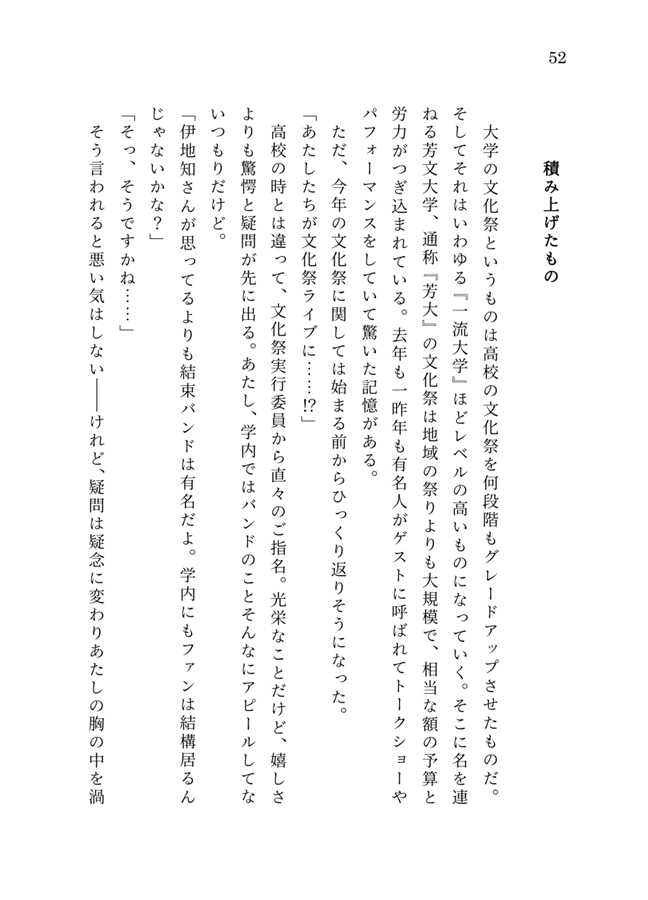 52
積み上げたもの
大学の文化祭というものは高校の文化祭を何段階もグレードアップさせたものだ。
そしてそれはいわゆる『一流大学』ほどレベルの高いものになっていく。そこに名を連
ねる芳文大学、通称『芳大』の文化祭は地域の祭りよりも大規模で、相当な額の予算と
労力がつぎ込まれている。去年も一昨年も有名人がゲストに呼ばれてトークショーや
パフォーマンスをしていて驚いた記憶がある。
ただ、今年の文化祭に関しては始まる前からひっくり返りそうになった。
「あたしたちが文化祭ライブに……!?」
高校の時とは違って、文化祭実行委員から直々のご指名。光栄なことだけど、嬉しさ
よりも驚愕と疑問が先に出る。あたし、学内ではバンドのことそんなにアピールしてな
いつもりだけど。
「伊地知さんが思ってるよりも結束バンドは有名だよ。学内にもファンは結構居るん
じゃないかな？」
「そっ、そうですかね……」
そう言われると悪い気はしない――けれど、疑問は疑念に変わりあたしの胸の中を渦